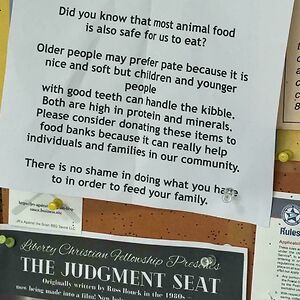 Did you know that most animal food
is also safe for us to eat?
Older people may prefer pate because it is
nice and soft but children and younger
people
with good teeth can handle the kibble.
Both are high in protein and minerals.
Please consider donating these items to
food banks because it can really help
individuals and families in our community.
There is no shame in doing what you have
to in order to feed your family.
Liberty Christian Fellowship Presents
THE JUDGMENT SEAT
Originally written by Russ Houck in the 1980s,
now being made into a film!
Rules